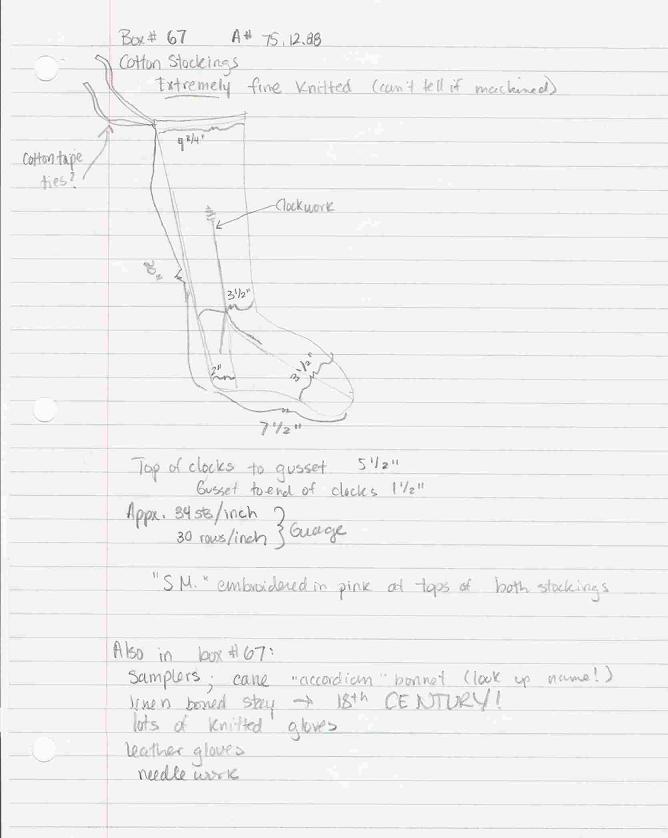 Box# 67 A# 75.12.88
Cotton Stockings
Extremely fine knitted (can't tell if machined)
9 3/4"
Cotton tape
ties?
Clockwork
20"
3 1/2"
2"
3 1/2"
7 1/2"
Top of clocks to gusset 5 1/2"
Gusset to end of clocks 1 1/2"
Appx. 34 sts/inch
30 rows/inch } Guage
"S M." embroidered in pink at tops of both stockings
Also in box #67:
Samplers; cane "accordian" bonnet (look up name!)
linen boned stay → 18th CENTURY!
lots of knitted gloves
leather gloves
needle work